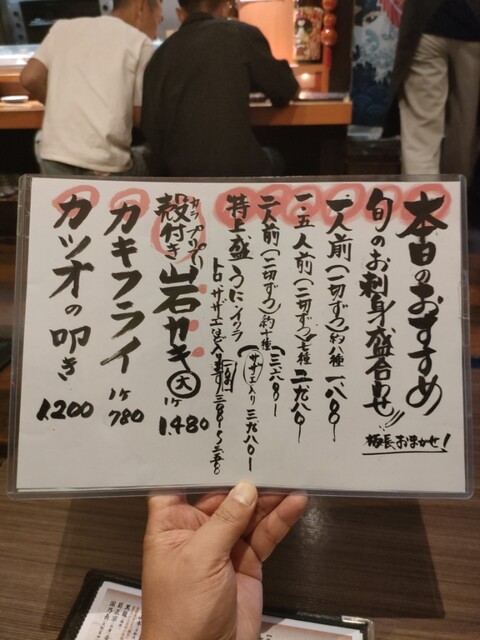 本日のおすすめ
旬のお刺身盛合わせ!!
板長おまかせ!
一人前(一切ずつ)約八種 一八〇〇ー
一.五人前(二切ずつ)七種 二九八〇ー
二人前(二切ずつ)約十種 三六八〇ー
(サザエ入り 三九八〇ー
特上盛 うに・イクラ
トロ サザエなど入ります
カラ プリプリ
殻付き岩ガキ 大 1ケ 1.480
カキフライ 1ケ 780
カツオの叩き 1200